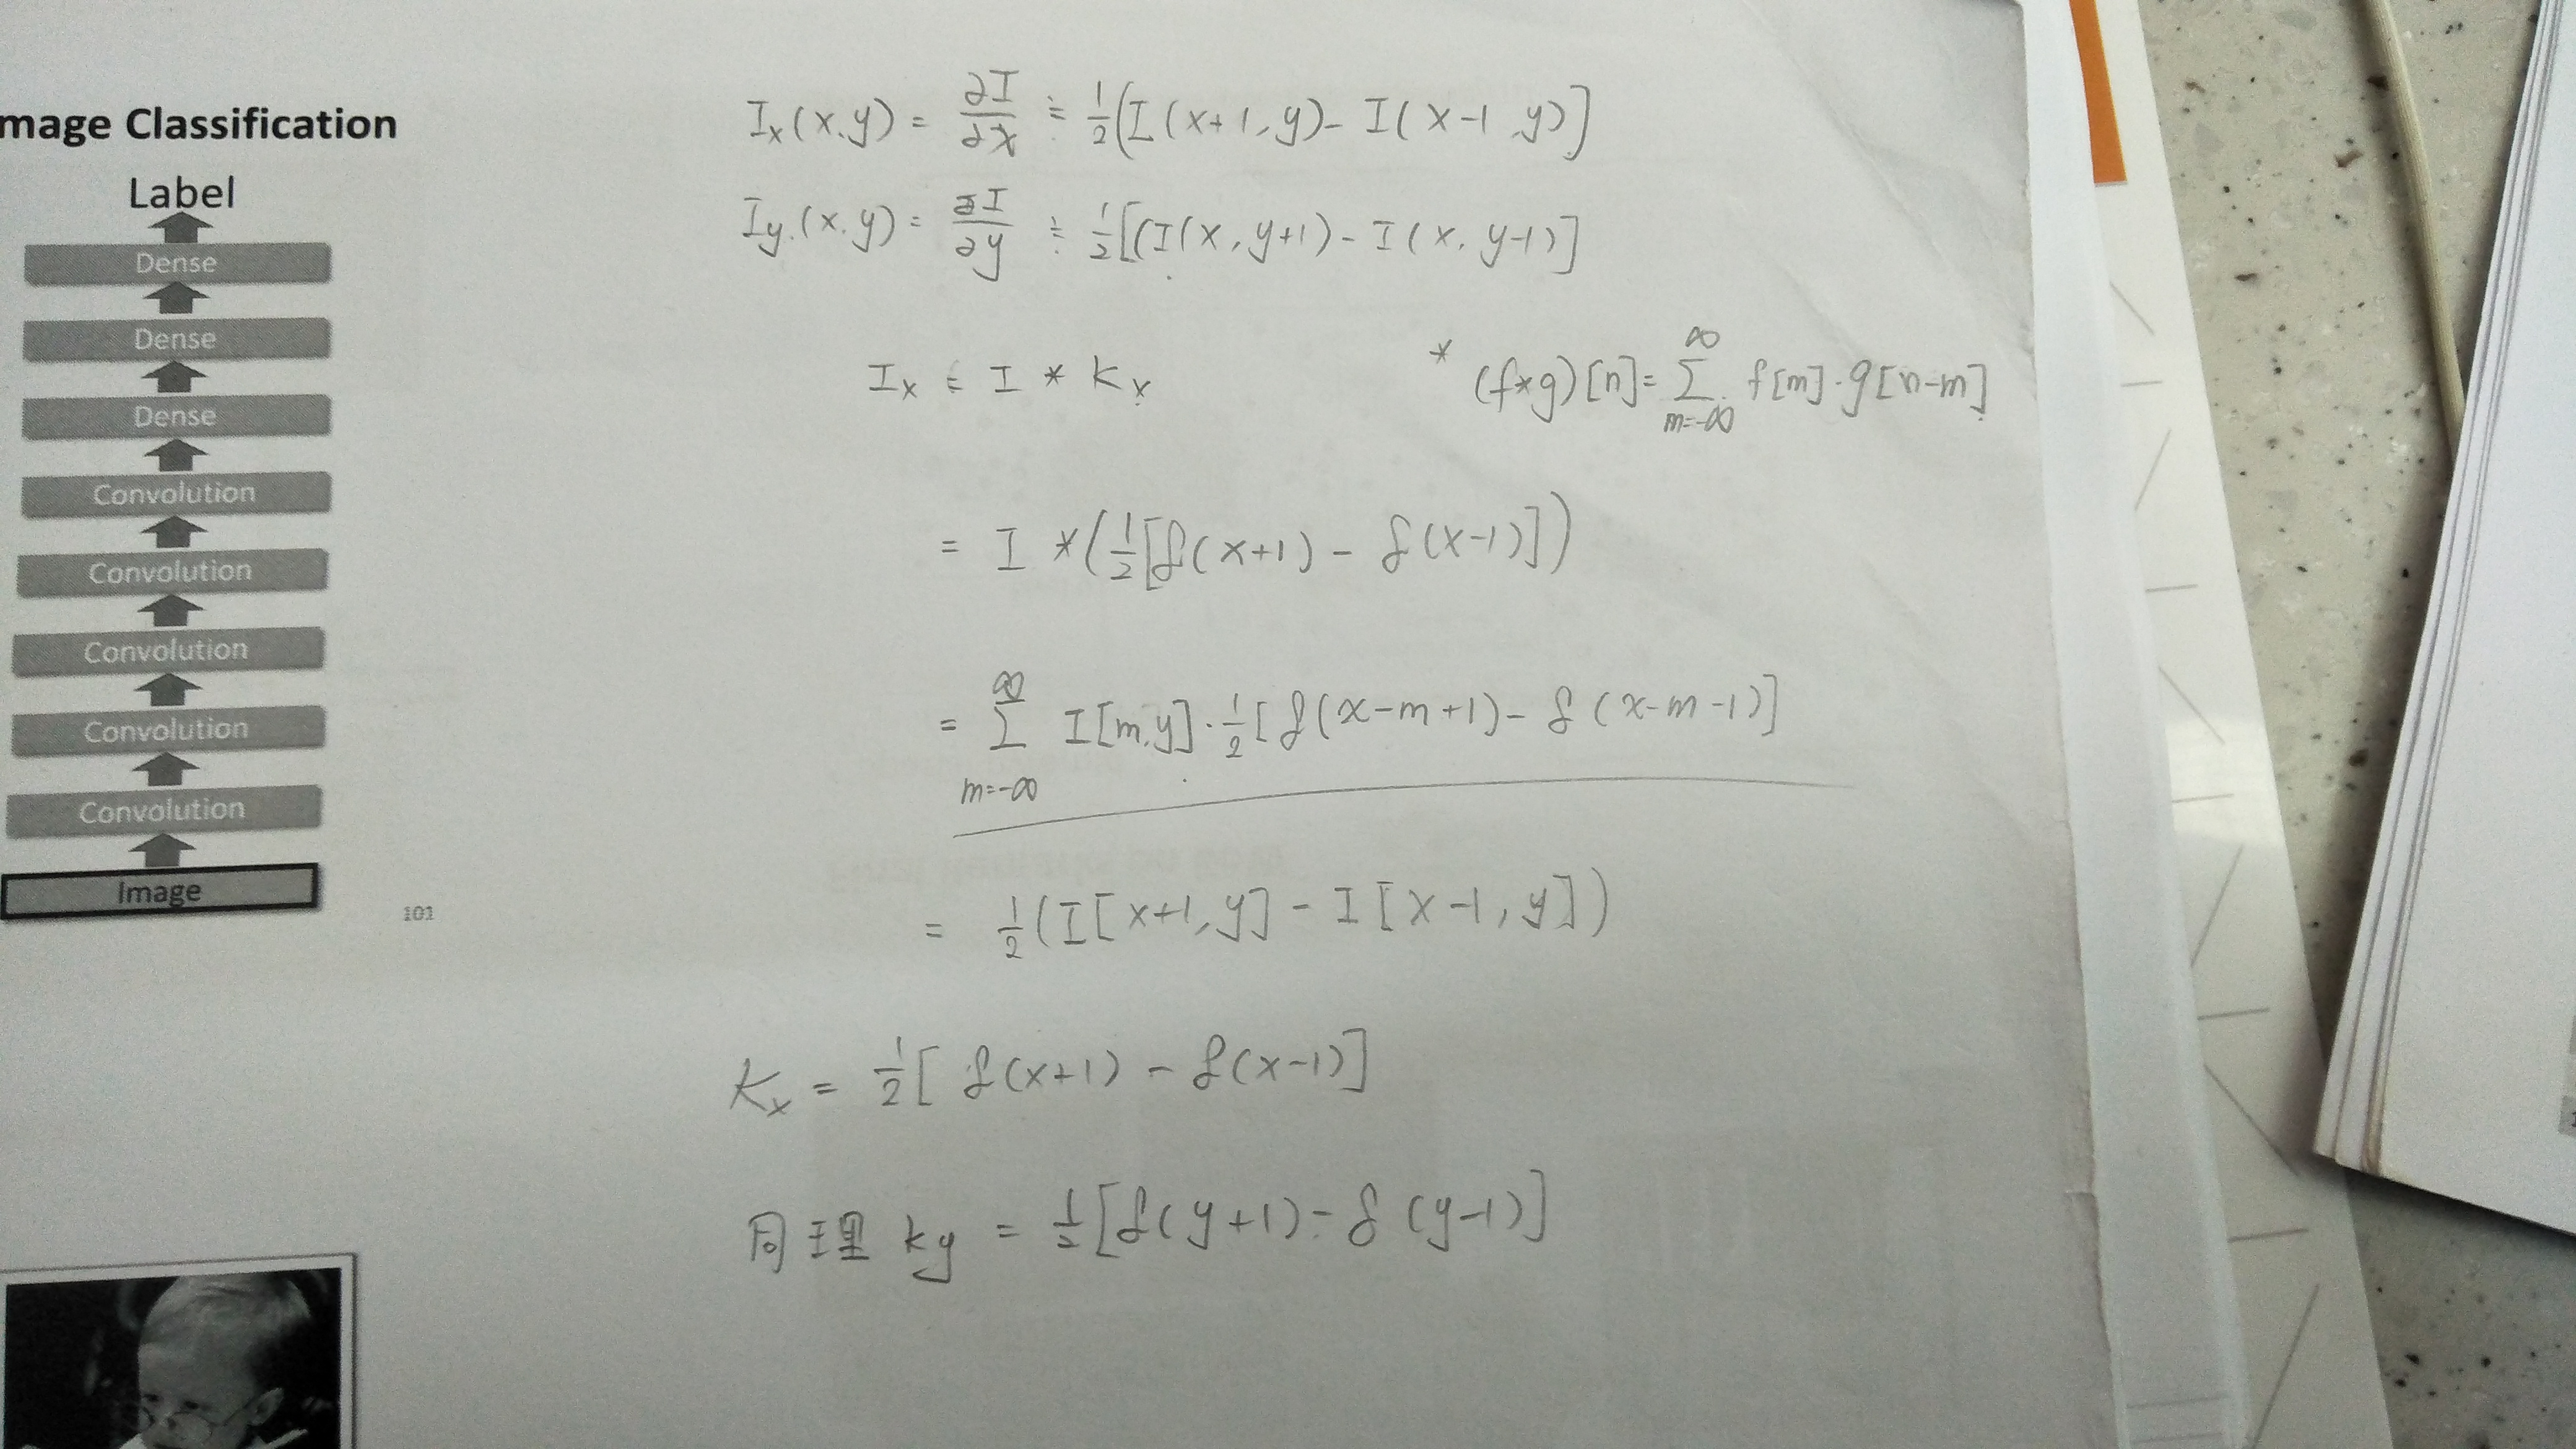 mage Classification
Label
Dense
Dense
Dense
Convolution
Convolution
Convolution
Convolution
Convolution
Image
101
Iₓ(x.y) = ∂I/∂x ≐ 1/2[I(x+1,y) - I(x-1,y)]
Iy.(x.y) = ∂I/∂y ≐ 1/2[(I(x,y+1) - I(x,y-1)]
Iₓ = I * Kₓ
* (f*g)[n] = ∑_{m=-∞}^{∞} f[m]·g[n-m]
= I * (1/2[δ(x+1) - δ(x-1)])
= ∑_{m=-∞}^{∞} I[m,y]·1/2[δ(x-m+1) - δ(x-m-1)]
= 1/2(I[x+1,y] - I[x-1,y])
Kₓ = 1/2[δ(x+1) - δ(x-1)]
同理 ky = 1/2[δ(y+1) - δ(y-1)]